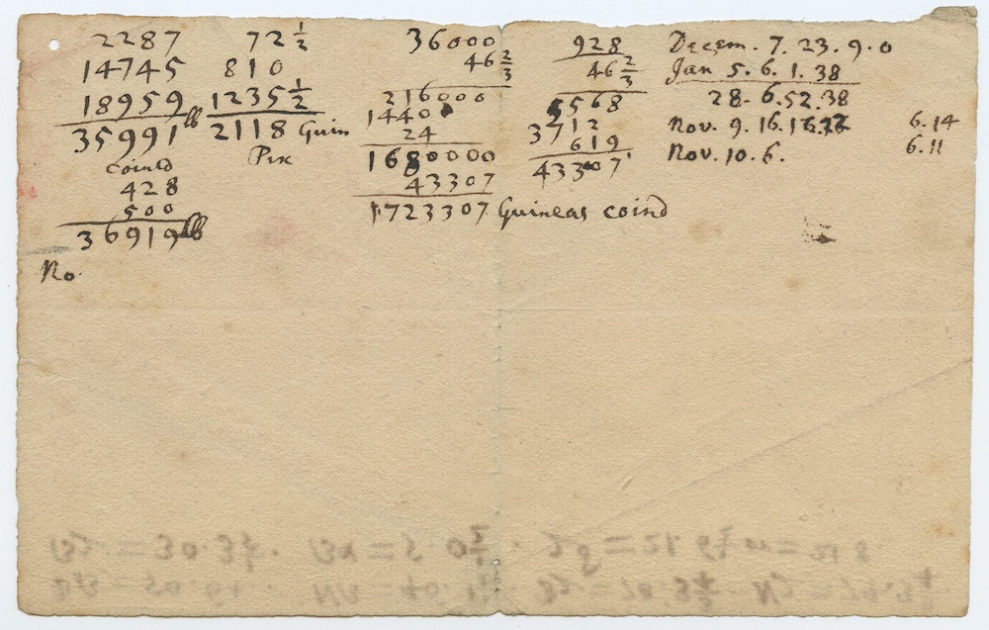 2287
14745
18959
35991 lb
coined
428
500
36919 lb
No.
72 1/2
810
1235 1/2
2118 Guin
Pix
36000
46 2/3
216000
1440
24
1680000
43307
1723307 Guineas coind
928
46 2/3
5568
3712
619
43307
Decem. 7. 23. 9. 0
Jan 5. 6. 1. 38
28. 6. 52. 38
Nov. 9. 16.
6.14
Nov. 10. 6.
6.11